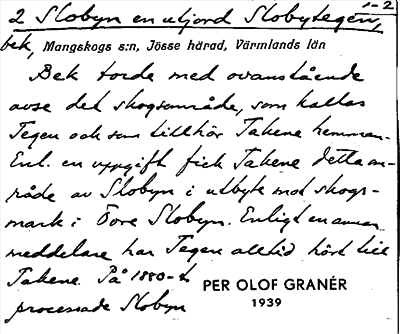 1-2
2 Slobyn en utjord Slobytegen,
bek, Mangskogs s:n, Jösse härad, Värmlands län
Bek torde med ovanstående
avse det skogsområde, som kallas
Tegen och som tillhör Takene hemman.
Enl. en uppgift fick Takene detta om-
råde av Slobyn i utbyte mot skogs-
mark i Övre Slobyn. Enligt en annan
meddelare har Tegen alltid hört till
Takene. På 1880-t
processade Slobyn
PER OLOF GRANÉR
1939